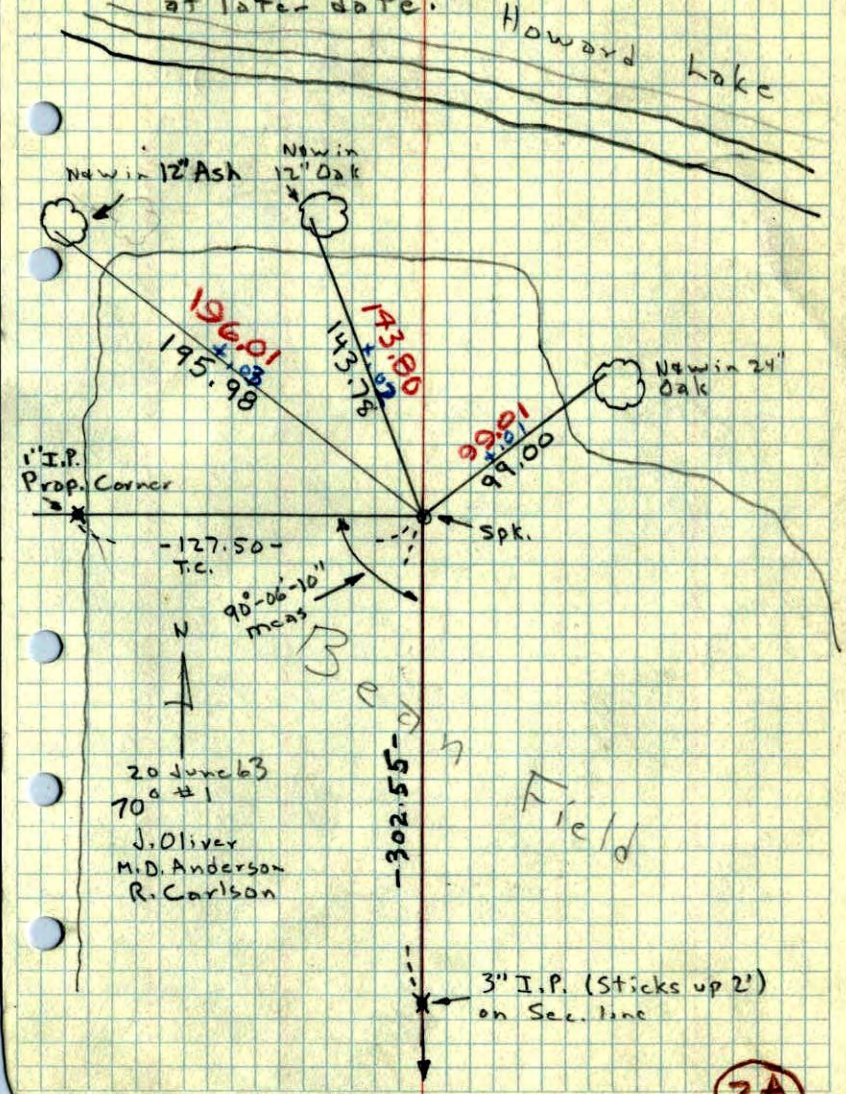 at later date.
Howard Lake
N&W in 12" Ash
N&W in
12" Oak
196.01
+.03
195.98
143.80
+.02
143.78
99.01
+.01
99.00
N&W in 24"
Oak
1" I.P.
Prop. Corner
Spk.
-127.50-
T.C.
90°-06'-10"
meas
N
Bean
Field
-302.55-
20 June 63
70° #1
J. Oliver
M.D. Anderson
R. Carlson
3" I.P. (Sticks up 2')
on Sec. line